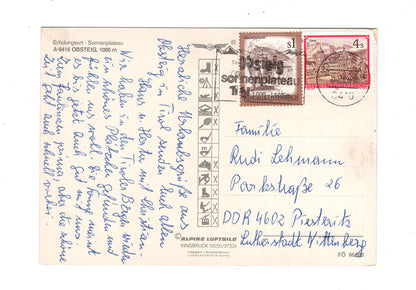 Erholungsort - Sonnenplateau
A-6416 OBSTEIG, 1000 m
Herzliche Urlaubsgrüße aus
Obsteig in Tirol senden Euch allen
Hans u. Herta mit Christian.
Wir haben in den Tiroler Bergen wieder
ein schönes Plätzchen gefunden und
fühlen uns wohl. Die Sonne meint
es bis jetzt auch gut mit uns.
Zum Faulenzen prima, aber die schöne
Zeit geht auch schnell vorbei.
S1
4s
Obsteig
sonnenplateau
Tirol
6416
Familie
Rudi Lehmann
Parkstraße 26
DDR 4602 Piesteritz
Lutherstadt Wittenberg
© ALPINE LUFTBILD
INNSBRUCK
FÖ